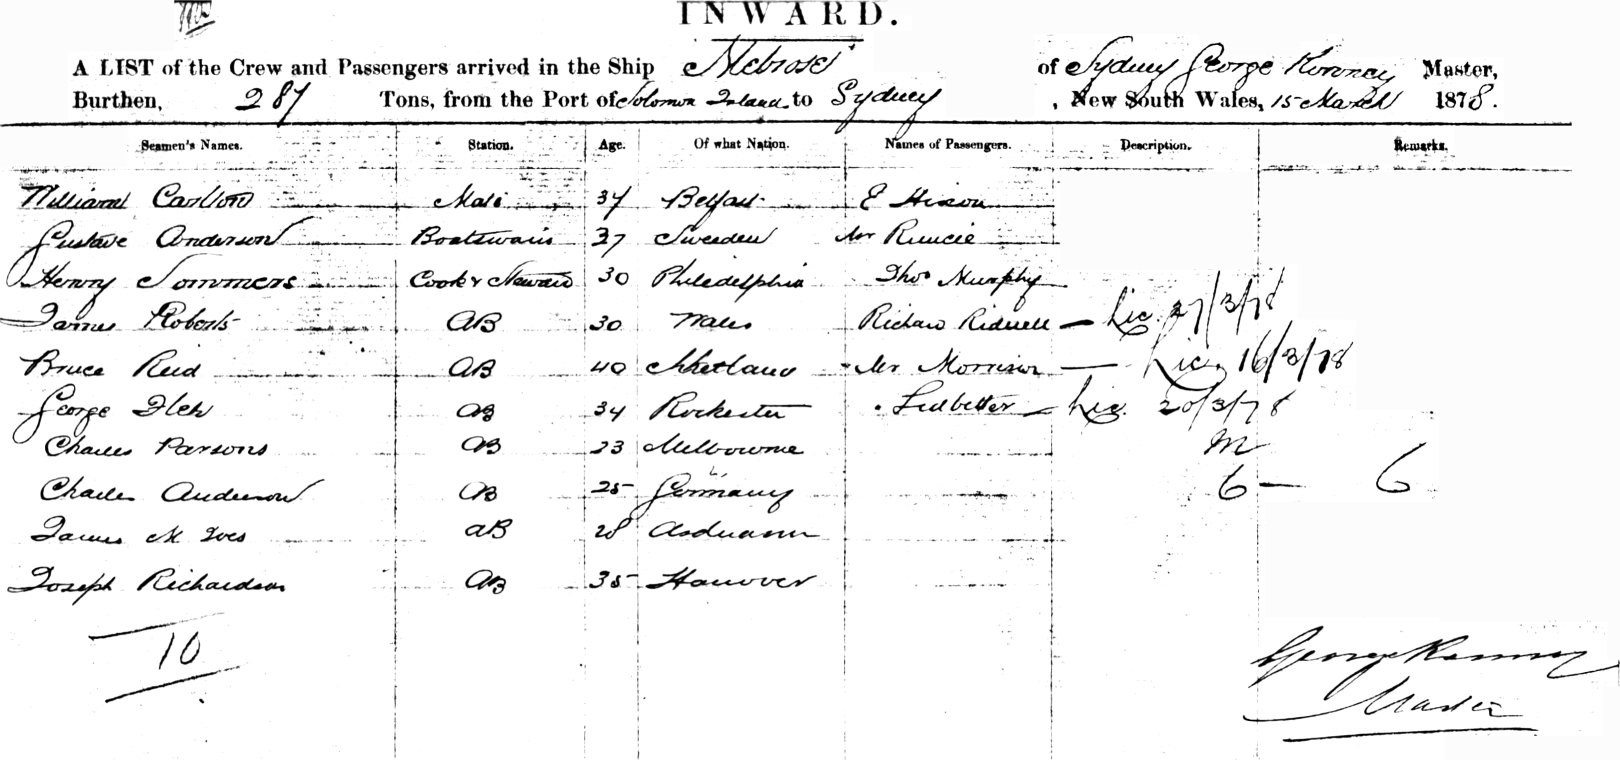 INWARD.
A LIST of the Crew and Passengers arrived in the Ship Melrose of Sydney George Master,
Burthen, 287 Tons, from the Port of Solomon Island to Sydney, New South Wales, 15 March 1878.
Seamen's Names. Station. Age. Of what Nation. Names of Passengers. Description. Remarks.
William Carlton Mate 37 Belfast E Hixon
Gustave Anderson Boatswain 37 Sweden Mr Runcie
Henry Sommers Cook & Steward 30 Philidelphia Thos Murphy
James Roberts AB 30 Wales Richard Ridwell — Lic. 27/3/78
Bruce Reid AB 40 Shetland Mr Morrison — Lic. 16/3/78
George AB 34 Rochester Ledbetter — Lic. 20/3/78
Charles Parsons AB 23 Melbourne M
Charles Anderson AB 25 Germany 6 — 6
James AB 28
Joseph Richardson AB 35 Hanover
10
George
Master